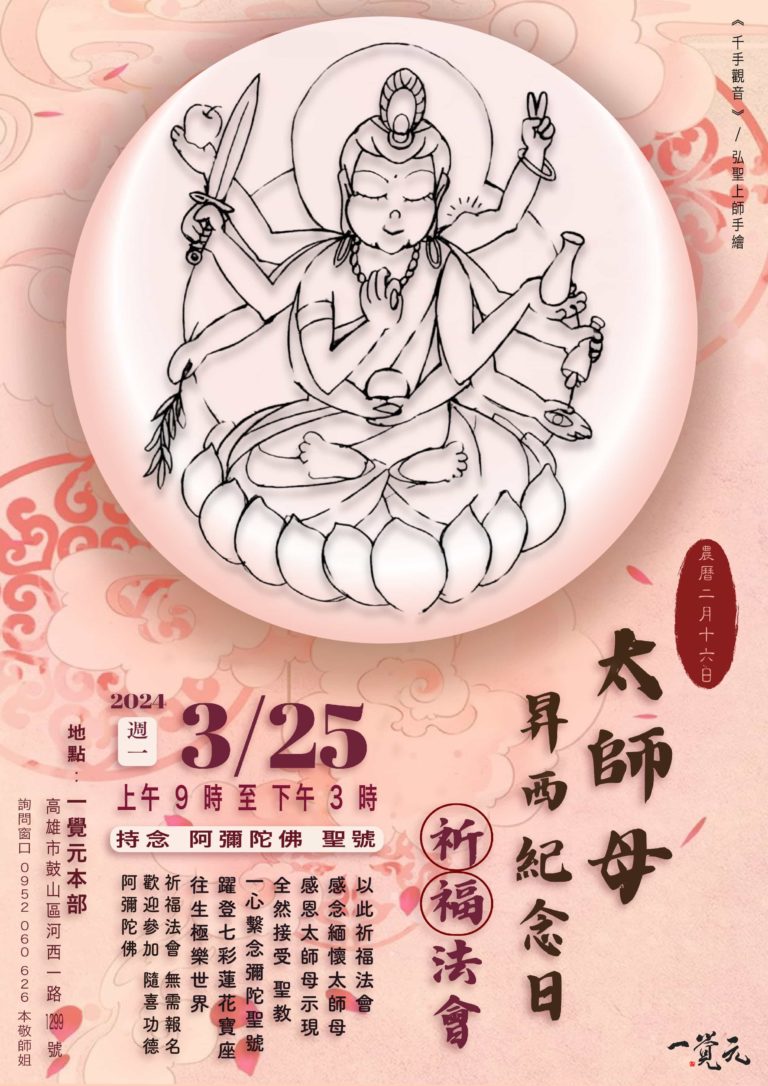 《千手觀音》/弘聖上師手繪
農曆二月十六日
太師母
昇西紀念日
祈福法會
2024
週一
3/25
上午9時至下午3時
持念 阿彌陀佛 聖號
以此祈福法會
感念緬懷太師母
感恩太師母示現
全然接受 聖教
一心繫念彌陀聖號
躍登七彩蓮花寶座
往生極樂世界
祈福法會 無需報名
歡迎參加 隨喜功德
阿彌陀佛
地點：一覺元本部
高雄市鼓山區河西一路1299號
詢問窗口 0952 060 626 本敬師姐
一覺元